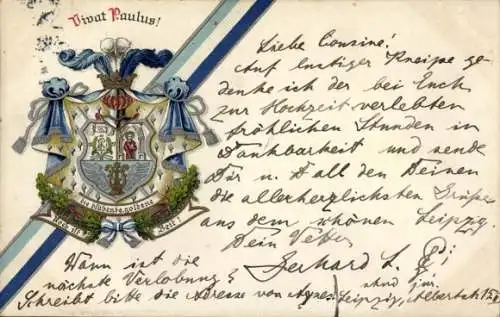 Vivat Paulus!
Liebe Cousine!
Auf lustiger Kneipe ge-
denke ich der bei Euch
zur Hochzeit verlebten
fröhlichen Stunden in
Dankbarkeit und sende
Dir u. all den Deinen
die allerherzlichsten Grüße
aus dem schönen Leipzig.
Dein Vetter
Gerhard L.
stud jur.
Noch ist die blühende, goldene Zeit!
Wann ist die
nächste Verlobung?
Schreibt bitte die Adresse von Agnes. Leipzig, Albertstr.